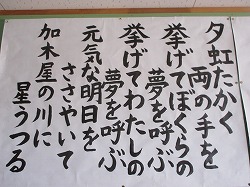 夕虹たかく
両の手を
挙げてぼくらの
夢を呼ぶ
挙げてわたしの
夢を呼ぶ
元気な明日を
ささやいて
加木屋の川に
星うつる